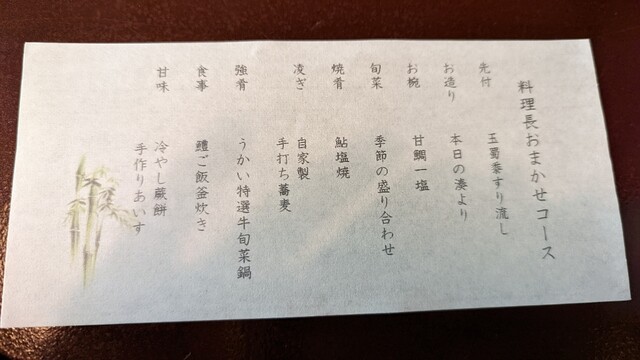 料理長おまかせコース
先付 玉蜀黍すり流し
お造り 本日の湊より
お椀 甘鯛一塩
旬菜 季節の盛り合わせ
焼肴 鮎塩焼
凌ぎ 自家製
手打ち蕎麦
強肴 うかい特選牛旬菜鍋
食事 鱧ご飯釜炊き
甘味 冷やし蕨餅
手作りあいす